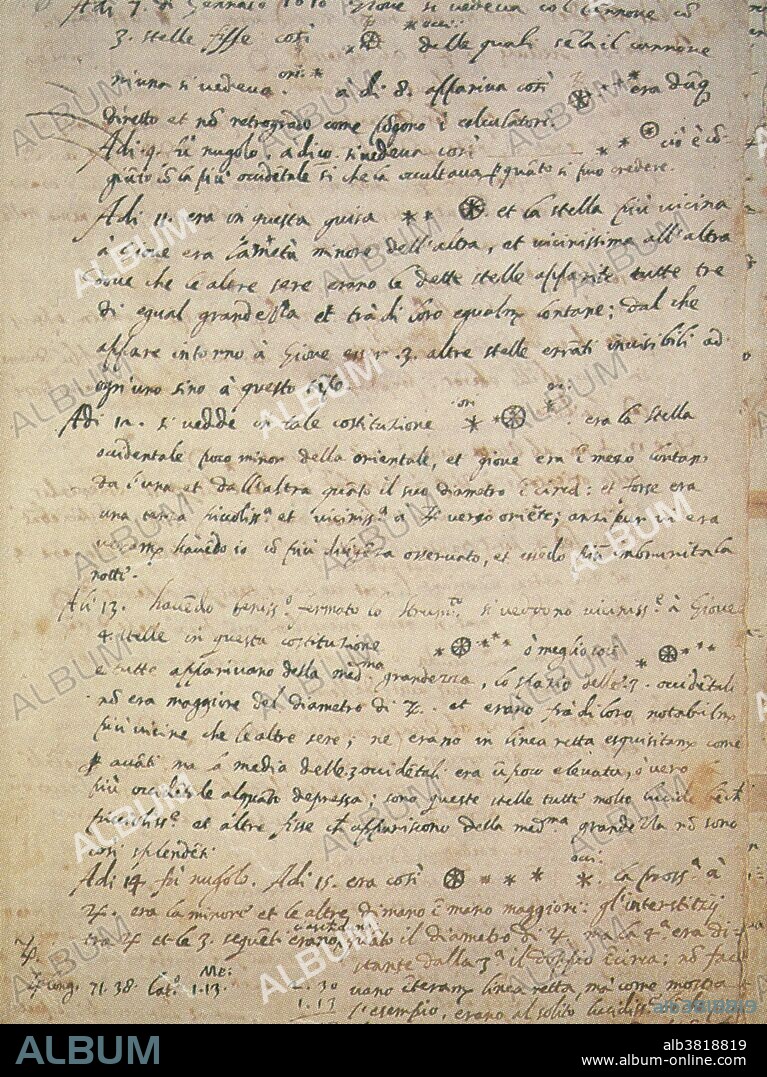 Adi 7. di Gennaio 1610 Giove si vedeva col Cannone cõ
3. stelle fisse così delle quali senza il cannone
niuna si vedeva. ori. à dì 8. appariva così era dũq
diretto et nõ retrogrado come i calculatori.
Adi 9. fù nugolo. à dì 10. si vedeva così cioè cõ
giũto cõ la più occidẽtale si che la occultava p quãto si può credere.
Adi 11. era in questa guisa et la stella più vicina
à Giove era la metà minore dell'altra, et vicinissima all'altra
dove che le altre sere erano le dette stelle apparite tutte tre
di egual grandezza et trà di loro equalm lontane; dal che
appare intorno à Giove esser 3. altre stelle errãti invisibili ad
ogn'uno sino à questo tẽpo.
Adi 12. si vedde in tale costituzione ori. occ: era la stella
occidentale poco minor della orientale, et giove era ĩ mezo lontan
da l'una et dall'altra quãto il suo diametro ĩ circa: et forse era
una terza piccoliss.ª et viciniss.ª à ♃ verso oriẽte; anzi pur vi era
veram havẽdo io cõ più diligẽza osservato, et essẽdo più imbrunita la
notte.
Adi 13. havẽdo beniss.º fermato lo strum.to si veggono viciniss.e à Giove
4 stelle in questa costituzione ò meglio così
e tutte apparivano della med.ma grandezza, lo spazio delle 3. occidẽtali
nõ era maggiore del diametro di ♃. et erano frà di loro notabilm
più vicine che le altre sere; ne erano in linea retta esquisitam come
p avãti ma la media delle 3 occidẽtali era ũ poco elevata, ò vero
la più occidẽtale alquãto depressa; sono queste stelle tutte molto lucide bẽch
piccoliss.e et altre fisse ch appariscono della med.ma grandezza nõ sono
così splendẽti.
Adi 14 fù nugolo. Adi 15. era così occ: la pross.ª à
♃. era la minore et le altre di mano ĩ mano maggiori: gl'interstizij
tra ♃ et le 3. seguẽti erano il diametro di ♃. ma la 4.ª era di-
stante dalla 3.ª il doppio ĩ circa; nõ fac
♃ long. 71.38. lat.º Me: 1.13. 1.30 vano ĩteram linea retta, ma come mostra
1.13 l'esempio, erano al solito lucidiss.e
ALBUM
ALBUM
ab3818819
www.album-online.com